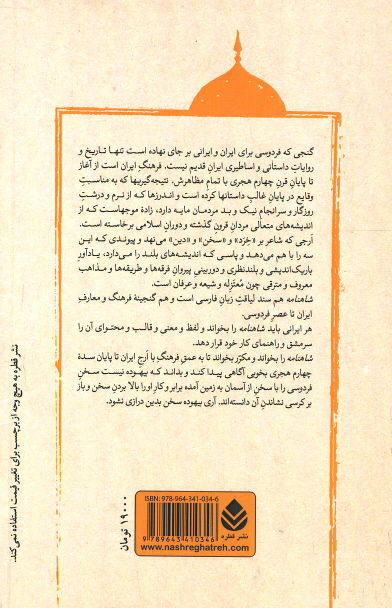 گنجی که فردوسی برای ایران و ایرانی بر جای نهاده است تنها تاریخ و
روایات داستانی و اساطیری ایران قدیم نیست. فرهنگ ایران است از آغاز
تا پایان قرن چهارم هجری با تمام مظاهرش. نتیجه‌گیریها که به مناسبت
وقایع در پایان غالب داستانها کرده است و اندرزها که از نرم و درشت
روزگار و سرانجام نیک و بد مردمان مایه دارد، زادهٔ موجهاست که از
اندیشه‌های متعالی مردان قرون گذشته و دوران اسلامی برخاسته است.
ارجی که شاعر بر «خِرَد» و «سخن» و «دین» می‌نهد و پیوندی که این
سه را با هم می‌دهد و پاسی که اندیشه‌های بلند را می‌دارد، یادآور
باریک‌اندیشی و بلندنظری و دوربینی پیروان فرقه‌ها و طریقه‌ها و مذاهب
معروف و مترقی چون مُعتَزِله و شیعه و عرفان است.
شاهنامه هم سند لیاقتِ زبان فارسی است و هم گنجینهٔ فرهنگ و معارفِ
ایران تا عصرِ فردوسی.
هر ایرانی باید شاهنامه را بخواند و لفظ و معنی و قالب و محتوای آن را
سرمشق و راهنمای کار خود قرار دهد.
شاهنامه را بخواند و مکرّر بخواند تا به عمقِ فرهنگِ با ارجِ ایران تا پایان سدهٔ
چهارم هجری بخوبی آگاهی پیدا کند و بداند که بیهوده نیست سخنِ
فردوسی را با سخنِ از آسمان به زمین آمده برابر و کار او را بالا بردنِ سخن و باز
بر کرسی نشاندنِ آن دانسته‌اند. آری بیهوده سخن بدین درازی نشود.
نشر قطره به هیچ وجه از برچسب برای تغییر قیمت استفاده نمی‌کند.
۱۹۰۰۰ تومان
ISBN: 978-964-341-034-6
9 789643 410346
نشر قطره
www.nashreghatreh.com